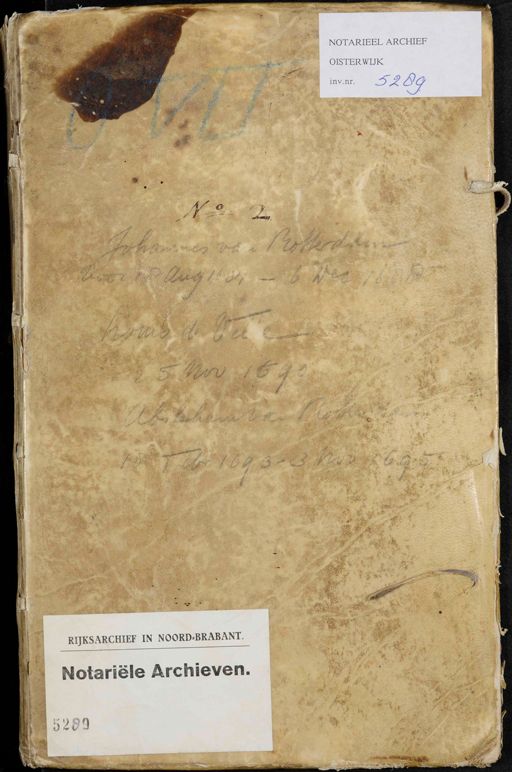 NOTARIEEL ARCHIEF
OISTERWIJK
inv.nr. 5289
VII
No 2
Johannes van Rotterdam
Aug - 6 Dec
Louis de
5 Nov 1690
Abraham van Rotterdam
1693 - 3 Nov 1695
RIJKSARCHIEF IN NOORD-BRABANT.
Notariële Archieven.
5289